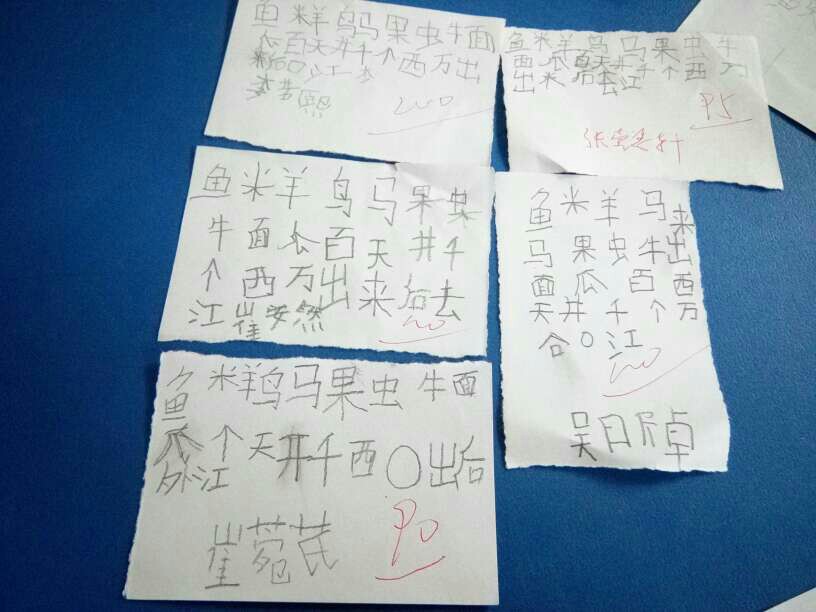 鱼米羊鸟马果虫牛面
瓜百天井千个西万出
来后江去
熙
100
鱼米羊鸟马果虫牛
面瓜百天井千个西万
出来后去江
95
鱼米羊鸟马果虫
牛面瓜百天井千
个西万出来后去
江崔安然
100
鱼米羊马来
马果虫牛出
面瓜百西
天井千个万
合〇江
100
吴日尓卓
鱼米羊鸟马果虫牛面
瓜个天井千西〇出后
外江
崔菀芪
90